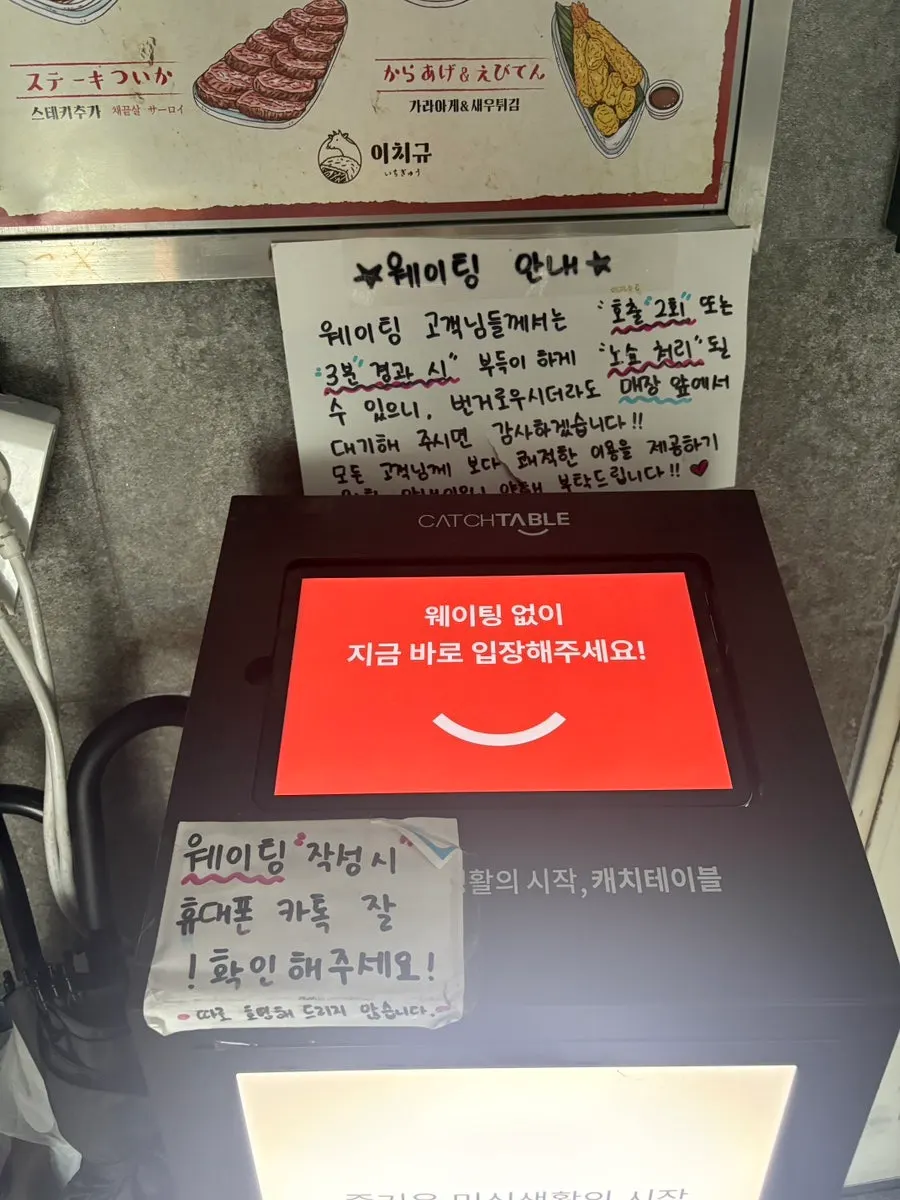 ステーキついか
스테키추가 채끝살 サーロイ
からあげ&えびてん
가라아게&새우튀김
이치규
いちぎゅう
★웨이팅 안내★
웨이팅 고객님들께서는 "호출"2회" 또는
"3분"경과 시" 부득이 하게 "노쇼 처리"될
수 있으니, 번거로우시더라도 매장 앞에서
대기해 주시면 감사하겠습니다!!
모든 고객님께 보다 쾌적한 이용을 제공하기
부탁드립니다!! ♥
CATCHTABLE
웨이팅 없이
지금 바로 입장해주세요!
활의 시작, 캐치테이블
웨이팅 "작성시"
휴대폰 카톡 잘
!확인해주세요!
따로 호명해 드리지 않습니다.
즐거운 미식생활의 시작